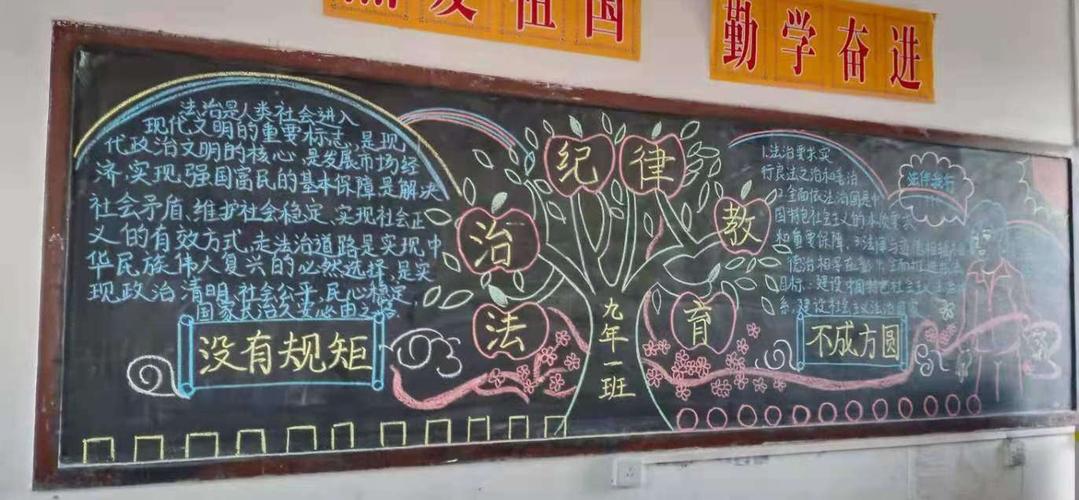 爱祖国
勤学奋进
法治是人类社会进入
现代文明的重要标志,是现
代政治文明的核心,是发展市场经
济,实现强国富民的基本保障,是解决
社会矛盾、维护社会稳定、实现社会正
义的有效方式,走法治道路是实现中
华民族伟大复兴的必然选择,是实
现政治清明,社会公平,民心稳定,
国家长治久安必由之路
没有规矩
法治纪律教育
九年一班
1.法治要求实
行良法之治和善治
2.全面依法治国是中
国特色社会主义的本质要求
和重要保障
德治相
目标:建设中国特色社会主义法治
系,建设社会主义法治国家
不成方圆